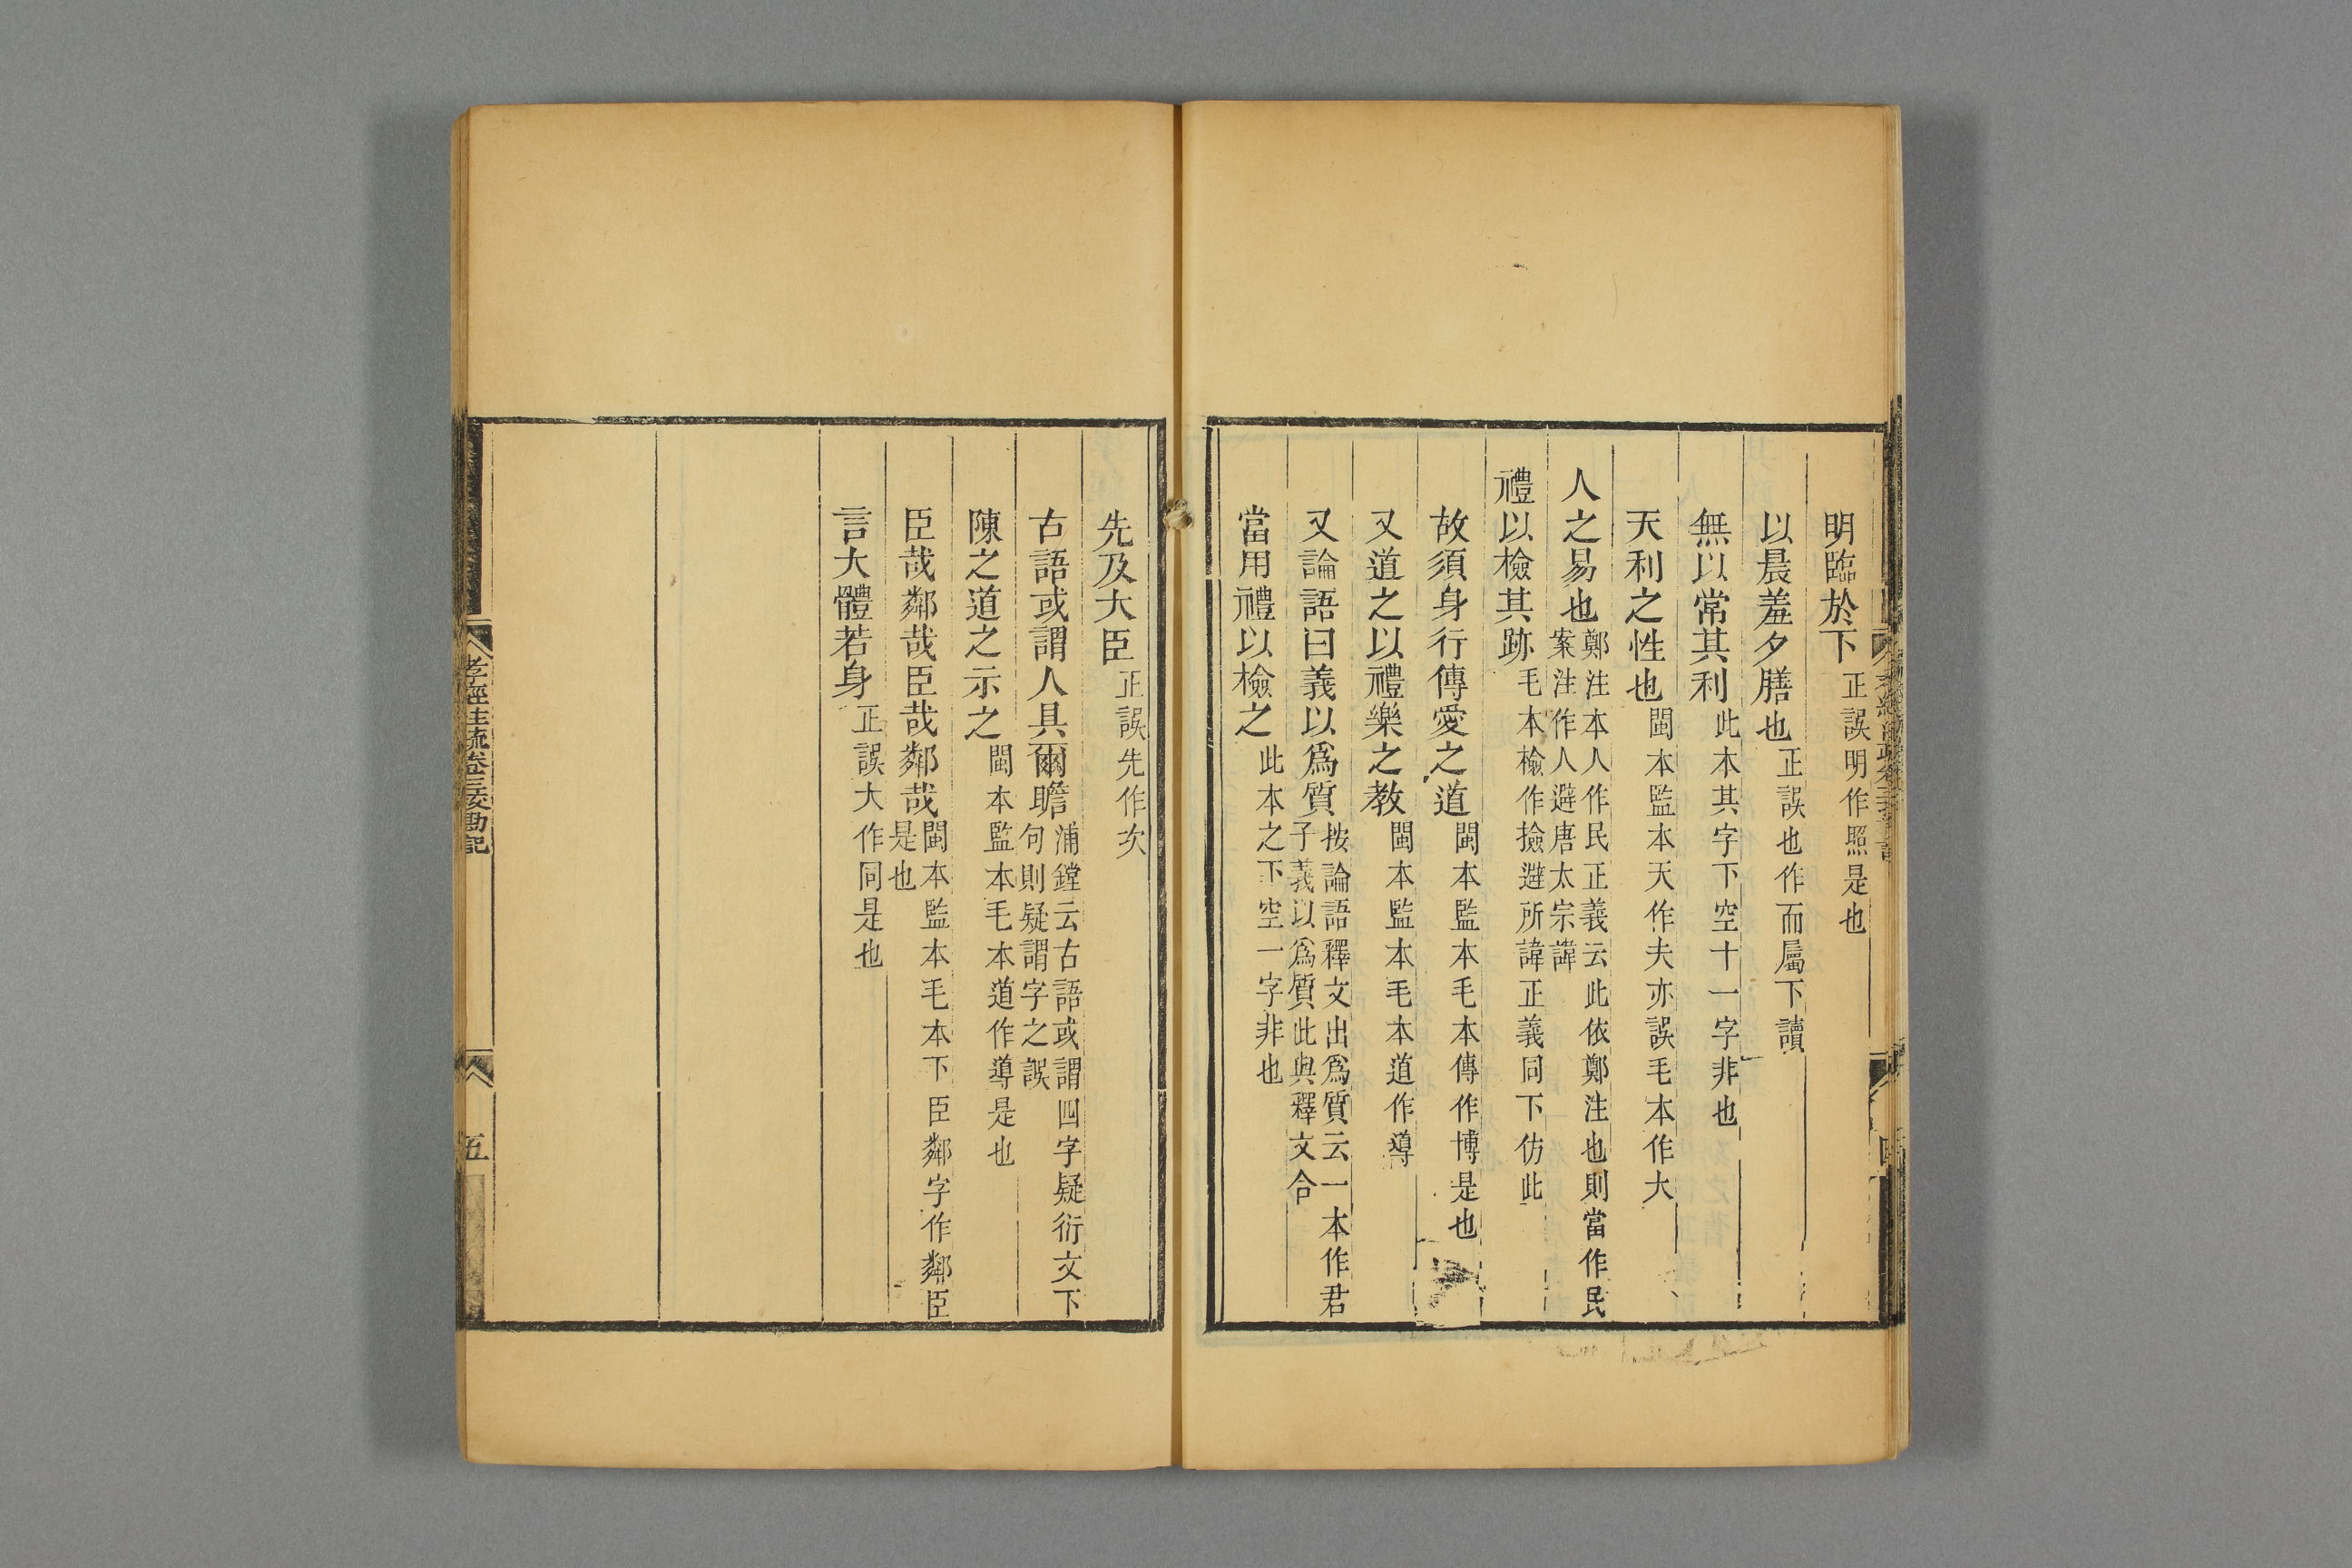 明臨於下正誤明作照是也
以晨羞夕膳也正誤也作而屬下讀
無以常其利此本其字下空十一字非也
天利之性也閩本監本天作夫亦誤毛本作大
人之易也鄭注本人作民正義云此依鄭注也則當作民
案注作人避唐太宗諱
禮以檢其跡毛本檢作撿避所諱正義同下仿此
故須身行傳愛之道閩本監本毛本傳作博是也
又道之以禮樂之教閩本監本毛本道作導
又論語曰義以爲質按論語釋文出爲質云一本作君
子義以爲質此與釋文合
當用禮以檢之此本之下空一字非也
先及大臣正誤先作次
古語或謂人具爾瞻浦鏜云古語或謂四字疑衍文下
句則疑謂字之誤
陳之道之示之閩本監本毛本道作導是也
臣哉鄰哉臣哉鄰哉閩本監本毛本下臣鄰字作鄰臣
是也
言大體若身正誤大作同是也
孝經注疏卷三挍勘記
五